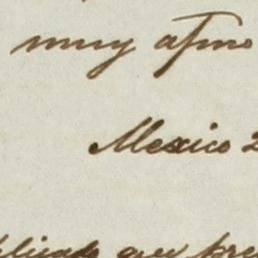 muy afmo
Mexico 2
que pre